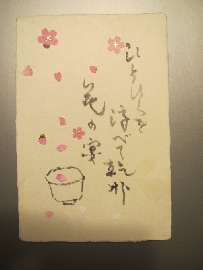 ひとひらを
浮べて乾杯
花の宴